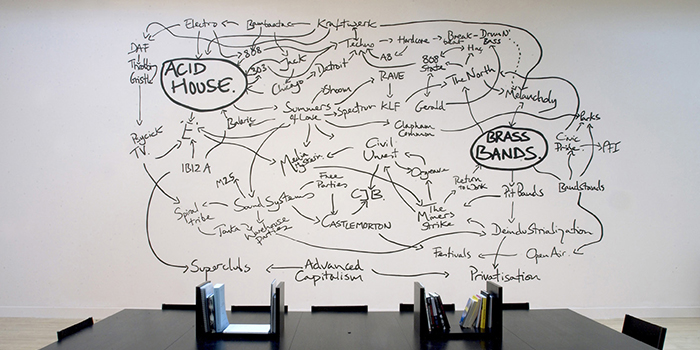 Electro
Bambaataa
Kraftwerk
DAF
808
Techno
Hardcore
Break-
beat
Drum N'
Bass
Throbbing
Gristle
ACID
HOUSE.
303
Jack
Detroit
AB
808
State
Hac
Chicago
RAVE
The North
Shoom
Melancholy
Summers
of Love
Spectrum
KLF
Gerald
Balearic
Clapham
Common
Parks
Psychick
TV.
E.
BRASS
BANDS.
Civic
Pride
PFI
Media
Hysteria
Civil
Unrest
IBIZA
M25
Free
Parties
CJB.
Orgreave
Return
to Work
Pit Bands
Bandstands
Spiral
tribe
Sound Systems
The
Miners
Strike
Warehouse
parties
CASTLEMORTON
Deindustrialization
Festivals
Open Air.
Superclubs
Advanced
Capitalism
Privatisation